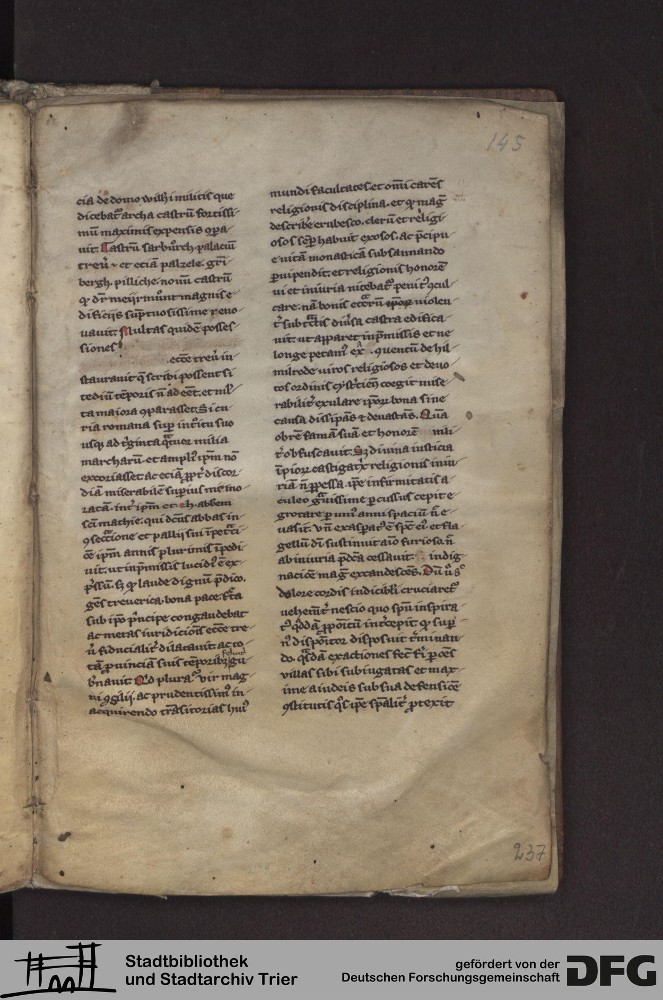 145
cia de domo willhi militis que
dicebat᷑ archa castrū fortissi
mū maximis expensis ꝯpa
uit. Castrū sarburch. palaciū
treū et eciā palzele. gri
bergh. pilliche. nouū castrū
ꝙ dr̄ meyermūnt magnis e
dificijs sūptuosissime reno
uauit. Multas quidē posses
siones
eccē treū in
staurauit q̄ scribi possent si
tediū tēporis n̄ adeēt. et ml᷑
ta maiora ꝯparasset. Si cu
ria romana sup intoitu suo
usqꝫ ad tͥginta q̄tuor milia
marcharū. et amplꝰ ipm̄ nō
excoriasset ac eciā ꝓpt᷑ discor
diā miserabilē supius memo
ratā. int᷑ ipm̄ et h. abbem
sc̄i mathie. qui dc̄us abbas in
ꝯsecᷓcione et pallij sui īpetᷓci
ōe ipm̄ annis plurimis īpedi
uit. ut inpͥmissis lucidiꝰ ē ex
p̄ssū. sꝫ ꝙ laude dignū p̄dico.
gēs treuerica. bona pace. fr̄ta
sub ipo pͥncipe congaudebat
ac metas iuridicionis eccē tre
ū fiducialit᷑ dilatauit ac to
tā ꝓuinciā suis tēporibꝫ
gu
b᷑nauit Qͥd plura. vir mag
ni ꝯsilij. ac prudentissimꝰ in
acquirendo trāsitorias huiꝰ
mundi facultates. et om̄i carēs
religionis disciplina. et ꝙ mag᷑
describe᷑ erubesco. clerū et religi
osos semꝑ habuit exosos. ac p̄cipu
e uitā monasticā subsannando
ꝑuipendit. et religionis honorē
vi et iniuria nitebat᷑ penitꝰ ꝯcul
care. nā bonis ecc̄arū violen
t᷑ subtͣctis diu᷑sa castra edifica
uit. ut apparet inpͥmissis et ne
longe petamꝰ ex̄. quentū de hil
milrode viros religiosos et deuo
tos ordinis cyst᷑cien̄ coegit mise
rabilit᷑ exulare ipoꝝ bona sine
causa dissipans et deuastans. Quā
obrē famā suā et honorē mili
t᷑ obfuscauit. Sꝫ diuina iusticia
īpioꝝ castigatͥx religionis iniu
riā n̄ ꝑpessa. ipē infirmitatis a
culeo gᷓuissime ꝑcussus cepit e
grotare ꝑ uniꝰ anni spaciū n̄ e
uasit. vn̄ exasꝑatꝰ ē spc̄ eiꝰ et fla
gellū dī sustinuit aīo furioso. n̄
ab iniuria p̄dc̄a cessauit. indig
nacioē mag᷑ excandescēs. Dū
dolore cordis indicibili cruciaret᷑
uehemēt᷑ nescio quo spū inspira
tꝰ qͦddā ꝓpoītū intͥcepit ꝙ sup᷑
nꝰ dispoītor disposuit t᷑minan
do. qᷓsdā exactiones fec̄ fi᷑ ꝑ oēs
villas sibi subiugatas et max
ime a iudeis sub sua defensiōe
ꝯstitutis qͦs ipē spālit᷑ ꝓtexit
237
Stadtbibliothek
und Stadtarchiv Trier
gefördert von der
Deutschen Forschungsgemeinschaft
DFG